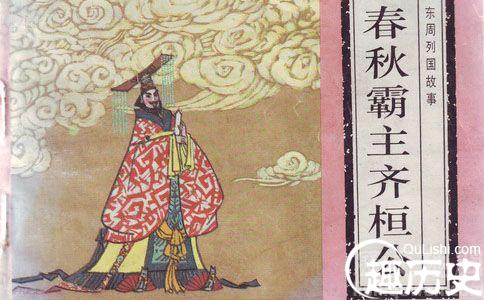 东周列国故事
春秋霸主齐桓公
QuLishi.com
趣历史